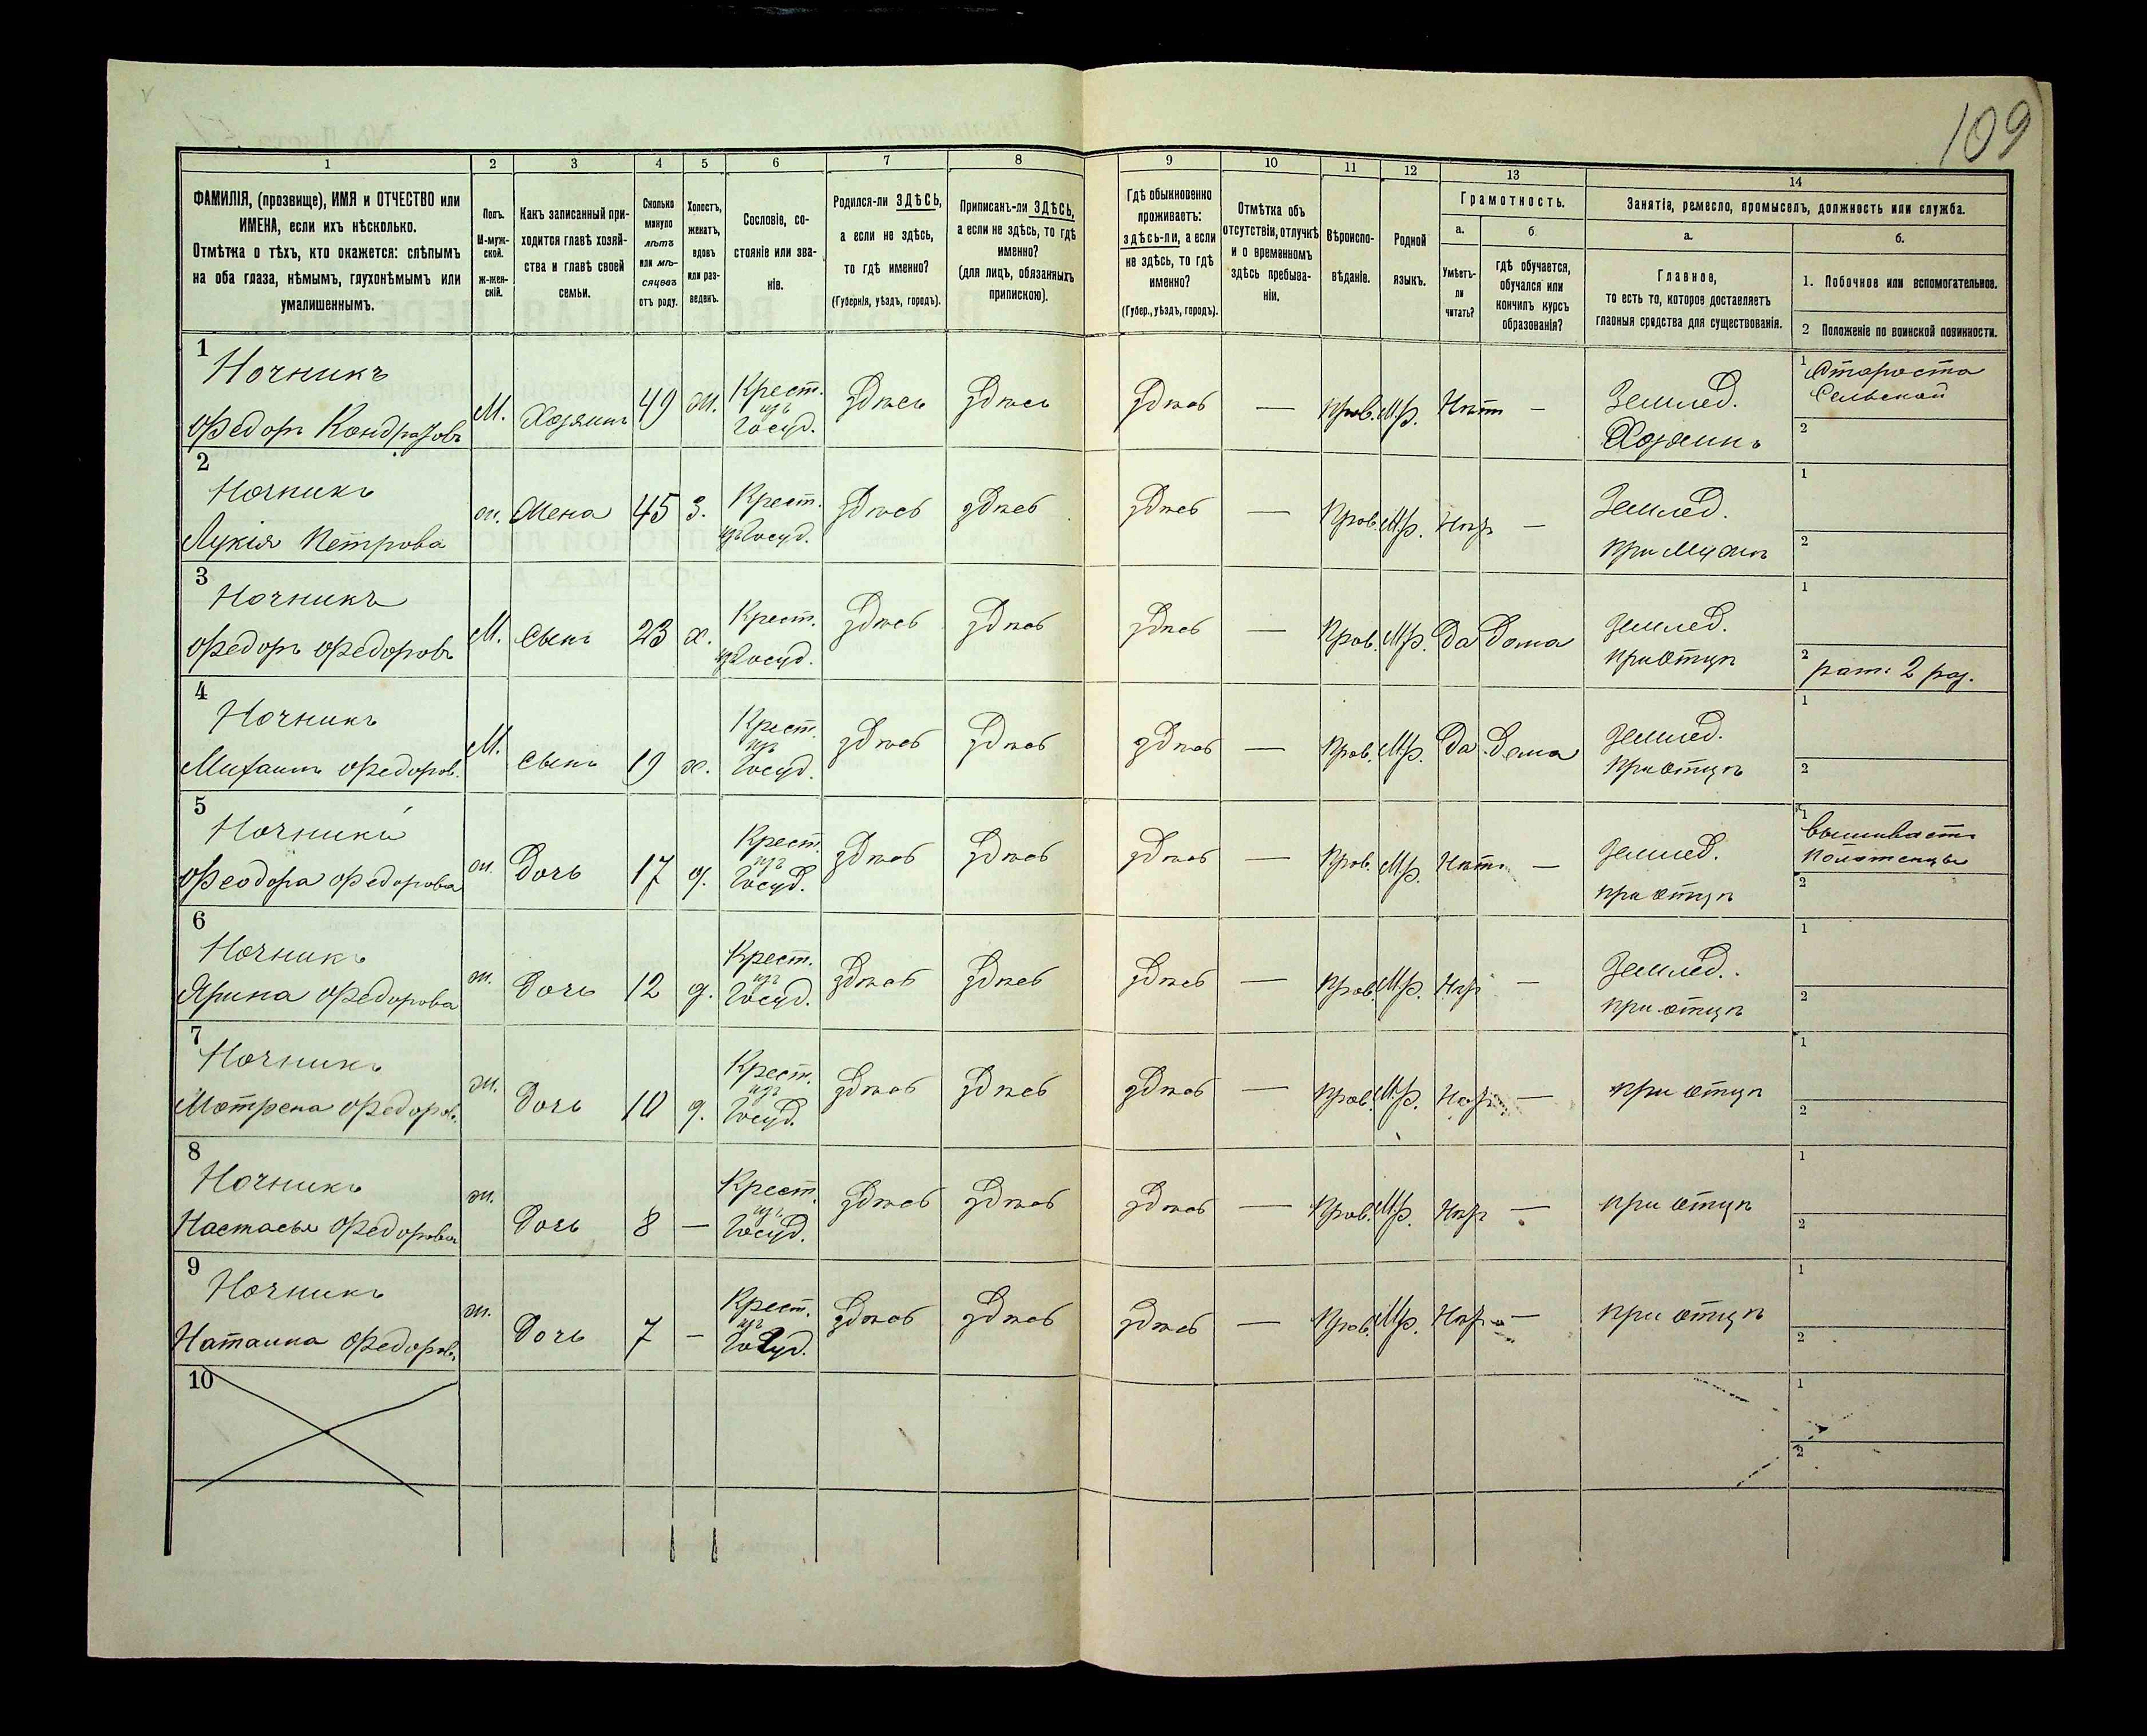 109
1 2 3 4 5 6 7 8 9 10 11 12 13 14
ФАМИЛІЯ, (прозвище), ИМЯ и ОТЧЕСТВО или
ИМЕНА, если ихъ нѣсколько.
Отмѣтка о тѣхъ, кто окажется: слѣпымъ
на оба глаза, нѣмымъ, глухонѣмымъ или
умалишеннымъ.
Полъ.
М-муж-
ской.
ж-жен-
скій.
Какъ записанный при-
ходится главѣ хозяй-
ства и главѣ своей
семьи.
Сколько
минуло
лѣтъ
или мѣ-
сяцевъ
отъ роду.
Холостъ,
женатъ,
вдовъ
или раз-
веденъ.
Сословіе, со-
стояніе или зва-
ніе.
Родился-ли ЗДѢСЬ,
а если не здѣсь,
то гдѣ именно?
(Губернія, уѣздъ, городъ).
Приписанъ-ли ЗДѢСЬ,
а если не здѣсь, то гдѣ
именно?
(для лицъ, обязанныхъ
припискою).
Гдѣ обыкновенно
проживаетъ:
здѣсь-ли, а если
не здѣсь, то гдѣ
именно?
(Губер., уѣздъ, городъ).
Отмѣтка объ
отсутствіи, отлучкѣ
и о временномъ
здѣсь пребыва-
ніи.
Вѣроиспо-
вѣданіе.
Родной
языкъ.
Грамотность.
а.
Умѣетъ-
ли
читать?
б.
гдѣ обучается,
обучался или
кончилъ курсъ
образованія?
Занятіе, ремесло, промыселъ, должность или служба.
а.
Главное,
то есть то, которое доставляетъ
главныя средства для существованія.
б.
1. Побочное или вспомогательное.
2 Положеніе по воинской повинности.
1
Ночникъ
Федоръ Кондратовъ
М. Хозяинъ 49 ж. Крест.
изъ
Госуд.
Здѣсь Здѣсь Здѣсь — Прав. М.р. Нѣтъ —
Землед.
Хозяинъ
1 Староста
Сельской
2
2
Ночникъ
Лукія Петрова
ж. Жена 45 з. Крест.
изъ Госуд.
Здѣсь здѣсь здѣсь — Прав. М.р. Нѣтъ —
Землед.
при Мужѣ
1
2
3
Ночникъ
Федоръ Федоровъ
М. Сынъ 23 х. Крест.
изъ Госуд.
Здѣсь Здѣсь здѣсь — Прав. М.р. Да Дома
Землед.
при Отцѣ
1
2 рат. 2 раз.
4
Ночникъ
Михаилъ Федоров.
М. Сынъ 19 х. Крест.
изъ
Госуд.
здѣсь здѣсь здѣсь — Прав. М.р. Да Дома
Землед.
При отцѣ
1
2
5
Феодора Федорова
ж. Дочь 17 д. Крест.
изъ
Госуд.
здѣсь здѣсь здѣсь — Прав. М.р. Нѣтъ —
Землед.
при отцѣ
1 вышиваетъ
2
6
Ночникъ
Ярина Федорова
ж. Дочь 12 д. Крест.
изъ
Госуд.
здѣсь здѣсь здѣсь — Прав. М.р. Нѣтъ —
Землед.
при отцѣ
1
2
7
Ночникъ
Мотрена Федоров.
ж. Дочь 10 д. Крест.
изъ
Госуд.
здѣсь здѣсь здѣсь — Прав. М.р. Нѣтъ —
при отцѣ
1
2
8
Ночникъ
Настасья Федорова
ж. Дочь 8 — Крест.
изъ
Госуд.
здѣсь здѣсь здѣсь — Прав. М.р. Нѣтъ —
при отцѣ
1
2
9
Ночникъ
Наталка Федоров.
ж. Дочь 7 — Крест.
изъ
Госуд.
здѣсь здѣсь здѣсь — Прав. М.р. Нѣтъ —
при отцѣ
1
2
10
1
2